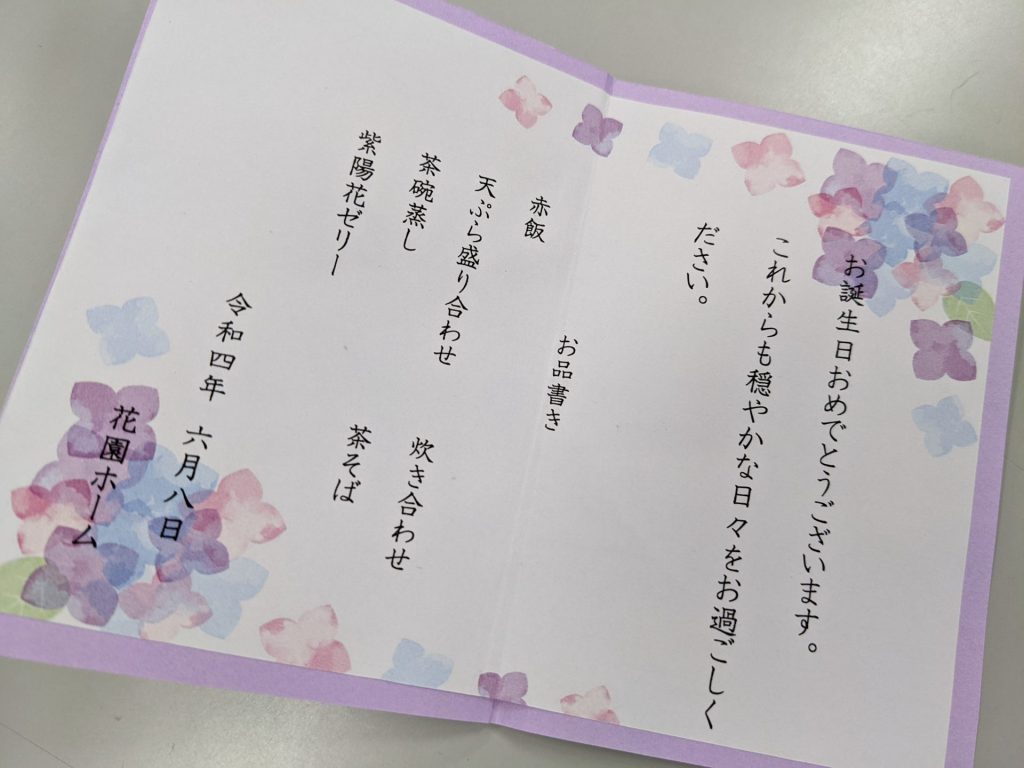 お誕生日おめでとうございます。
これからも穏やかな日々をお過ごしく
ださい。
お品書き
赤飯
天ぷら盛り合わせ
茶碗蒸し　炊き合わせ
紫陽花ゼリー　茶そば
令和四年　六月八日
花園ホーム